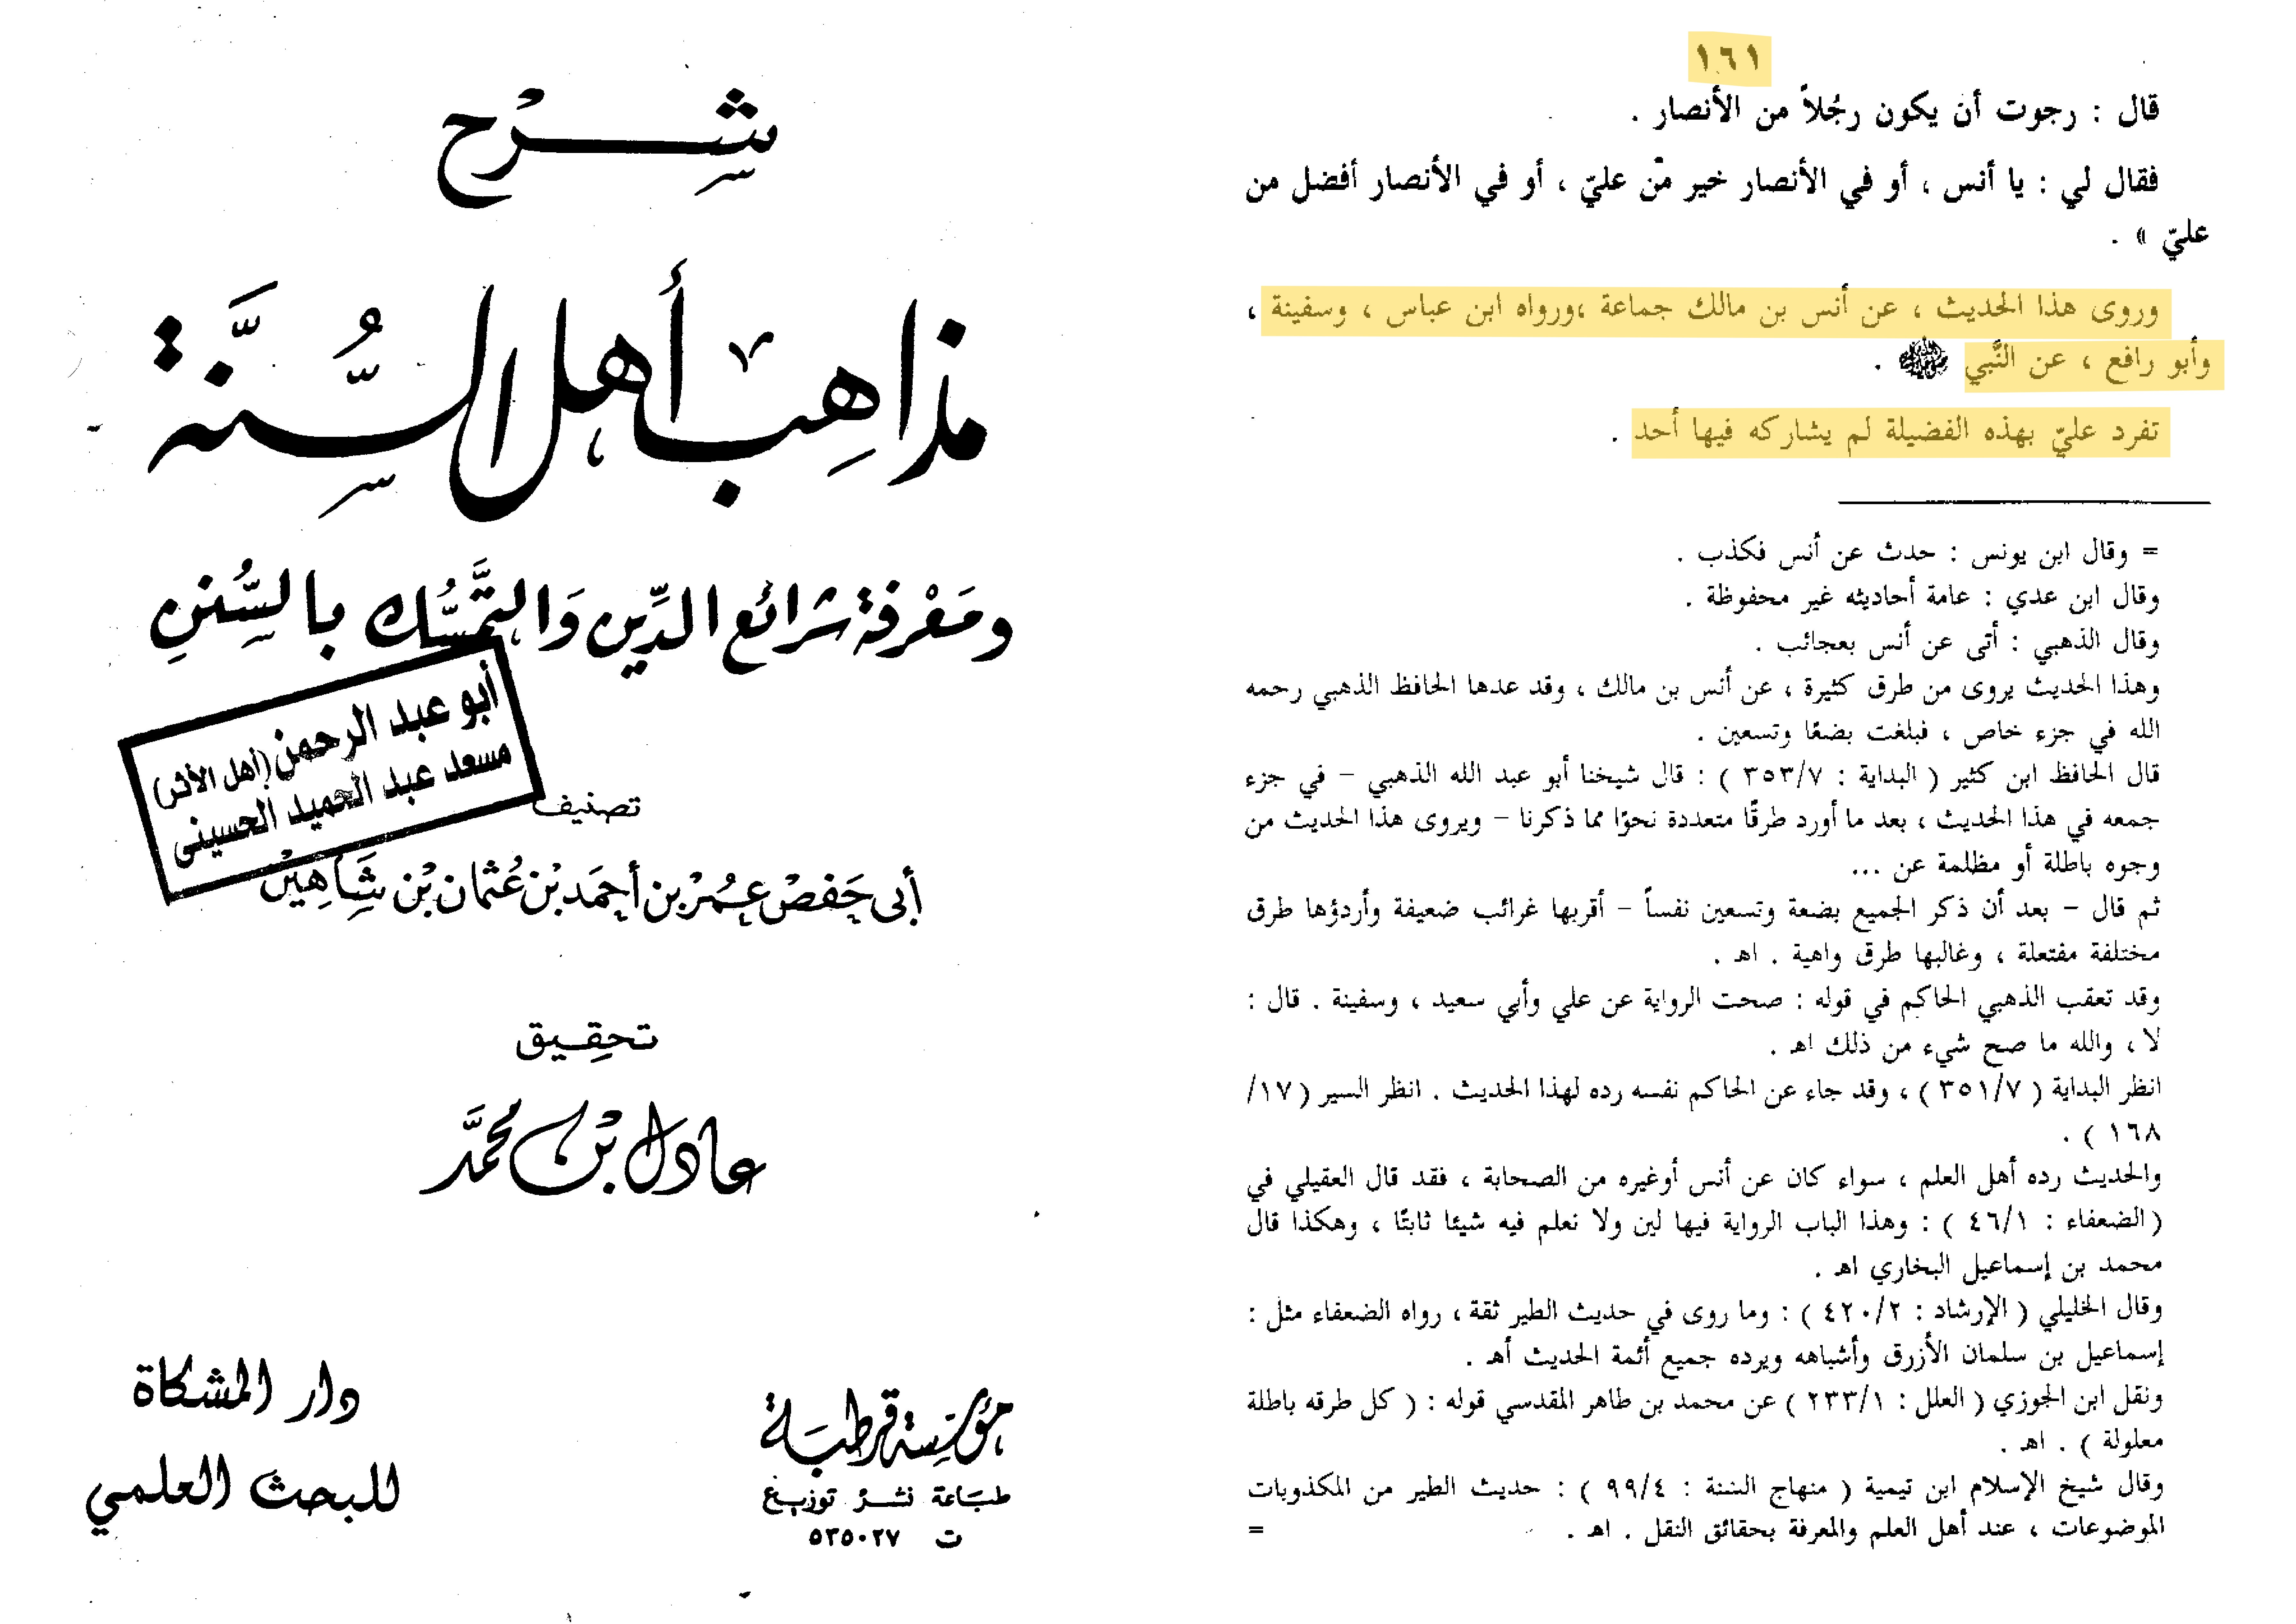 شرح
مذاهب أهل السُّنَّة
ومَعْرفة شرائع الدِّين وَالتَّمسُّك بالسُّنن
أبو عبد الرحمن (أهل الأثر)
مسعد عبد الحميد الحسينى
تصنيف
أبى حَفصْ عُمرْ بن أحمَد بْن عُثمان بْن شَاهِينْ
تحقيق
عادل بن محمَّد
مؤسسة قرطبة
طباعة نشر توزيع
ت ٥٣٥٠٢٧
دار المشكاة
للبحث العلمي
١٦١
قال : رجوت أن يكون رجُلاً من الأنصار .
فقال لي : يا أنس ، أو في الأنصار خير من عليّ ، أو في الأنصار أفضل من
عليّ » .
وروى هذا الحديث ، عن أنس بن مالك جماعة ،ورواه ابن عباس ، وسفينة ،
وأبو رافع ، عن النَّبي ﷺ .
تفرد عليّ بهذه الفضيلة لم يشاركه فيها أحد .
= وقال ابن يونس : حدث عن أنس فكذب .
وقال ابن عدي : عامة أحاديثه غير محفوظة .
وقال الذهبي : أتى عن أنس بعجائب .
وهذا الحديث يروى من طرق كثيرة ، عن أنس بن مالك ، وقد عدها الحافظ الذهبي رحمه
الله في جزء خاص ، فبلغت بضعًا وتسعين .
قال الحافظ ابن كثير ( البداية : ٣٥٣/٧ ) : قال شيخنا أبو عبد الله الذهبي – في جزء
جمعه في هذا الحديث ، بعد ما أورد طرقًا متعددة نحوًا مما ذكرنا – ويروى هذا الحديث من
وجوه باطلة أو مظلمة عن ...
ثم قال – بعد أن ذكر الجميع بضعة وتسعين نفساً – أقربها غرائب ضعيفة وأردؤها طرق
مختلفة مفتعلة ، وغالبها طرق واهية . اهـ .
وقد تعقب الذهبي الحاكم في قوله : صحت الرواية عن علي وأبي سعيد ، وسفينة . قال :
لا ، والله ما صح شيء من ذلك اهـ .
انظر البداية ( ٣٥١/٧ ) ، وقد جاء عن الحاكم نفسه رده لهذا الحديث . انظر السير ( ١٧/
١٦٨ ) .
والحديث رده أهل العلم ، سواء كان عن أنس أوغيره من الصحابة ، فقد قال العقيلي في
( الضعفاء : ٤٦/١ ) : وهذا الباب الرواية فيها لين ولا نعلم فيه شيئا ثابتًا ، وهكذا قال
محمد بن إسماعيل البخاري اهـ .
وقال الخليلي ( الإرشاد : ٤٢٠/٢ ) : وما روى في حديث الطير ثقة ، رواه الضعفاء مثل :
إسماعيل بن سلمان الأزرق وأشباهه ويرده جميع أئمة الحديث أهـ .
ونقل ابن الجوزي ( العلل : ٢٣٣/١ ) عن محمد بن طاهر المقدسي قوله : ( كل طرقه باطلة
معلولة ) . اهـ .
وقال شيخ الإسلام ابن تيمية ( منهاج السنة : ٩٩/٤ ) : حديث الطير من المكذوبات
الموضوعات ، عند أهل العلم والمعرفة بحقائق النقل . اهـ . =